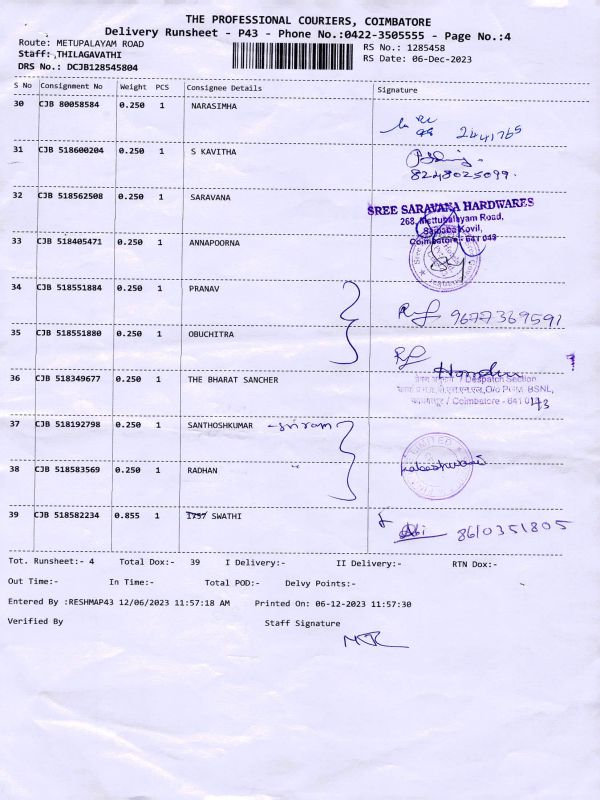 THE PROFESSIONAL COURIERS, COIMBATORE
Delivery Runsheet - P43 - Phone No.:0422-3505555 - Page No.:4
Route: METUPALAYAM ROAD RS No.: 1285458
Staff: ,THILAGAVATHI RS Date: 06-Dec-2023
DRS No.: DCJB128545804
S No Consignment No Weight PCS Consignee Details Signature
30 CJB 80058584 0.250 1 NARASIMHA
2441765
31 CJB 518600204 0.250 1 S KAVITHA
8248025099.
32 CJB 518562508 0.250 1 SARAVANA
SREE SARAVANA HARDWARES
268, Mettupalayam Road,
Saibaba Kovil,
Coimbatore - 641 043
33 CJB 518405471 0.250 1 ANNAPOORNA
34 CJB 518551884 0.250 1 PRANAV
9677369591
35 CJB 518551880 0.250 1 OBUCHITRA
36 CJB 518349677 0.250 1 THE BHARAT SANCHER
/ Despatch Section
O/o PGM BSNL,
/ Coimbatore - 641 043
37 CJB 518192798 0.250 1 SANTHOSHKUMAR - sriram
LIMITED
38 CJB 518583569 0.250 1 RADHAN
39 CJB 518582234 0.855 1 1757 SWATHI
Abi 8610351805
Tot. Runsheet:- 4 Total Dox:- 39 I Delivery:- II Delivery:- RTN Dox:-
Out Time:- In Time:- Total POD:- Delvy Points:-
Entered By :RESHMAP43 12/06/2023 11:57:18 AM Printed On: 06-12-2023 11:57:30
Verified By Staff Signature